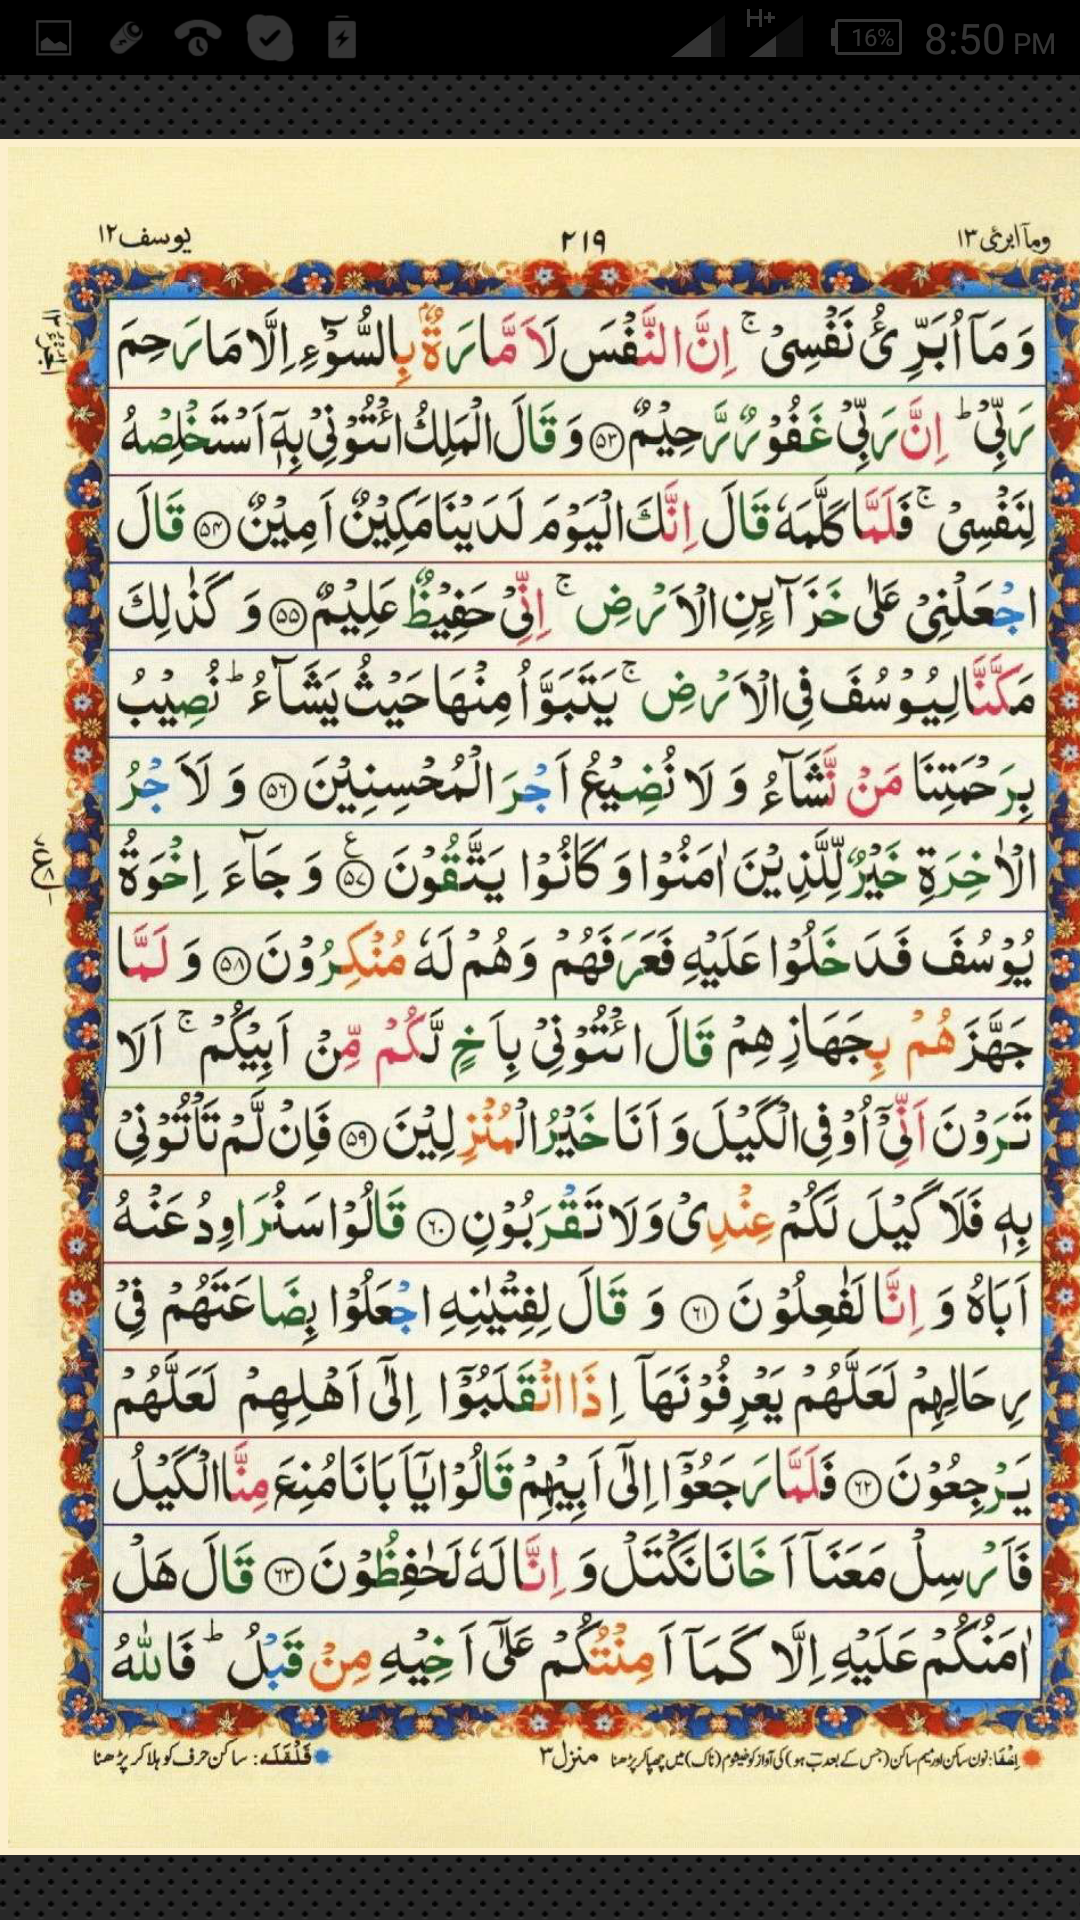 H+
16%
8:50 PM
ومآ ابرئ ١٣
٢١٩
يوسف ١٢
وَ مَاۤ اُبَرِّئُ نَفْسِیْ ۚ اِنَّ النَّفْسَ لَاَمَّارَةٌۢ بِالسُّوْٓءِ اِلَّا مَا رَحِمَ
رَبِّیْ ؕ اِنَّ رَبِّیْ غَفُوْرٌ رَّحِیْمٌ ﴿۵۳﴾ وَ قَالَ الْمَلِكُ ائْتُوْنِیْ بِهٖۤ اَسْتَخْلِصْهُ
لِنَفْسِیْ ۚ فَلَمَّا كَلَّمَهٗ قَالَ اِنَّكَ الْیَوْمَ لَدَیْنَا مَكِیْنٌ اَمِیْنٌ ﴿۵۴﴾ قَالَ
اجْعَلْنِیْ عَلٰی خَزَآىِٕنِ الْاَرْضِ ۚ اِنِّیْ حَفِیْظٌ عَلِیْمٌ ﴿۵۵﴾ وَ كَذٰلِكَ
مَكَّنَّا لِیُوْسُفَ فِی الْاَرْضِ ۚ یَتَبَوَّاُ مِنْهَا حَیْثُ یَشَآءُ ؕ نُصِیْبُ
بِرَحْمَتِنَا مَنْ نَّشَآءُ وَ لَا نُضِیْعُ اَجْرَ الْمُحْسِنِیْنَ ﴿۵۶﴾ وَ لَاَجْرُ
الْاٰخِرَةِ خَیْرٌ لِّلَّذِیْنَ اٰمَنُوْا وَ كَانُوْا یَتَّقُوْنَ ﴿۵۷﴾ ع وَ جَآءَ اِخْوَةُ
یُوْسُفَ فَدَخَلُوْا عَلَیْهِ فَعَرَفَهُمْ وَ هُمْ لَهٗ مُنْكِرُوْنَ ﴿۵۸﴾ وَ لَمَّا
جَهَّزَهُمْ بِجَهَازِهِمْ قَالَ ائْتُوْنِیْ بِاَخٍ لَّكُمْ مِّنْ اَبِیْكُمْ ۚ اَلَا
تَرَوْنَ اَنِّیْۤ اُوْفِی الْكَیْلَ وَ اَنَا خَیْرُ الْمُنْزِلِیْنَ ﴿۵۹﴾ فَاِنْ لَّمْ تَاْتُوْنِیْ
بِهٖ فَلَا كَیْلَ لَكُمْ عِنْدِیْ وَ لَا تَقْرَبُوْنِ ﴿۶۰﴾ قَالُوْا سَنُرَاوِدُ عَنْهُ
اَبَاهُ وَ اِنَّا لَفٰعِلُوْنَ ﴿۶۱﴾ وَ قَالَ لِفِتْیٰنِهِ اجْعَلُوْا بِضَاعَتَهُمْ فِیْ
رِحَالِهِمْ لَعَلَّهُمْ یَعْرِفُوْنَهَاۤ اِذَا انْقَلَبُوْۤا اِلٰۤی اَهْلِهِمْ لَعَلَّهُمْ
یَرْجِعُوْنَ ﴿۶۲﴾ فَلَمَّا رَجَعُوْۤا اِلٰۤی اَبِیْهِمْ قَالُوْا یٰۤاَبَانَا مُنِعَ مِنَّا الْكَیْلُ
فَاَرْسِلْ مَعَنَاۤ اَخَانَا نَكْتَلْ وَ اِنَّا لَهٗ لَحٰفِظُوْنَ ﴿۶۳﴾ قَالَ هَلْ
اٰمَنُكُمْ عَلَیْهِ اِلَّا كَمَاۤ اَمِنْتُكُمْ عَلٰۤی اَخِیْهِ مِنْ قَبْلُ ؕ فَاللّٰهُ
اِخْفَا: نون ساکن اور میم ساکن (جس کے بعد ب ہو) کی آواز کو خیشوم (ناک) میں چھپا کر پڑھنا
منزل ٣
قَلْقَلَہ: ساکن حرف کو ہلا کر پڑھنا